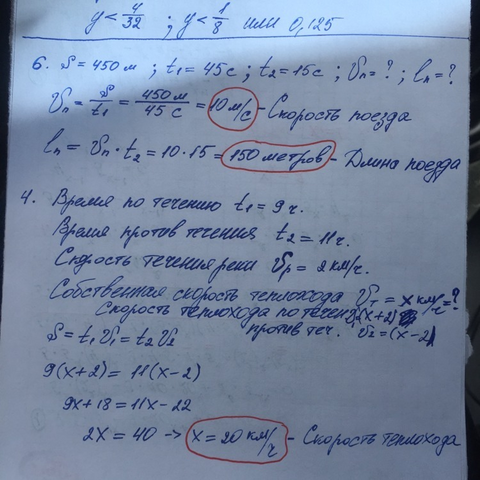 y < 4/32 ; y < 1/8 или 0,125
6. S = 450 м ; t1 = 45 с ; t2 = 15 с ; Vп = ? ; lп = ?
Vп = S/t1 = 450 м/45 с = 10 м/с - Скорость поезда
lп = Vп · t2 = 10 · 15 = 150 метров - Длина поезда
4. Время по течению t1 = 9 ч.
Время против течения t2 = 11 ч.
Скорость течения реки Vр = 2 км/ч.
Собственная скорость теплохода Vт = x км/ч = ?
Скорость теплохода по течен V1 (x+2)
против теч. V2 = (x-2)
S = t1 V1 = t2 V2
9(x+2) = 11(x-2)
9x+18 = 11x-22
2x = 40 -> x = 20 км/ч - Скорость теплохода